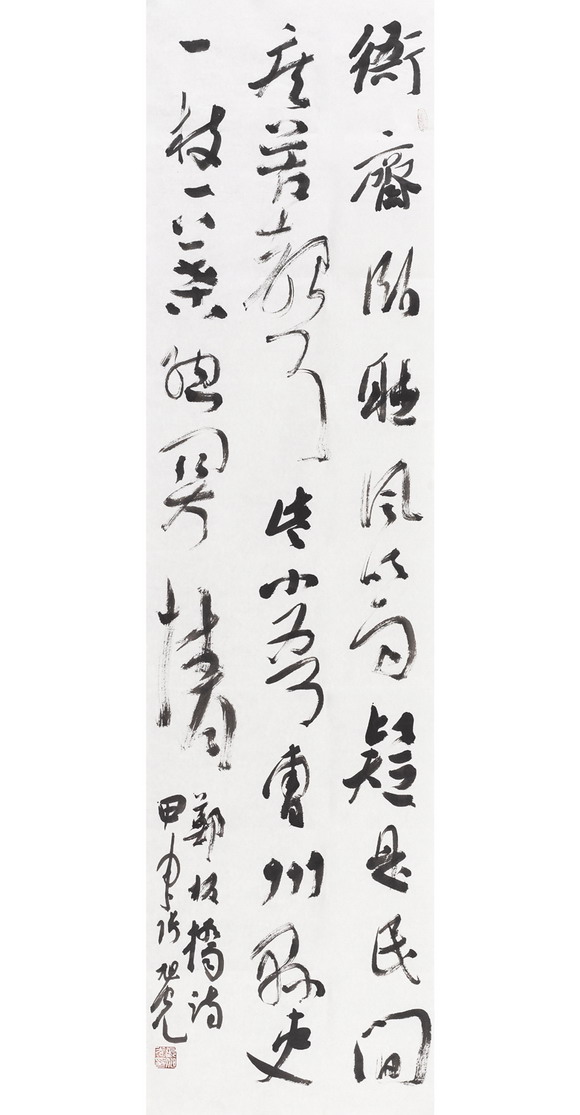 衙齋卧聽風疑是民間
疾苦聲些小吾曹州縣吏
一枝一葉總關情
鄭板橋詩